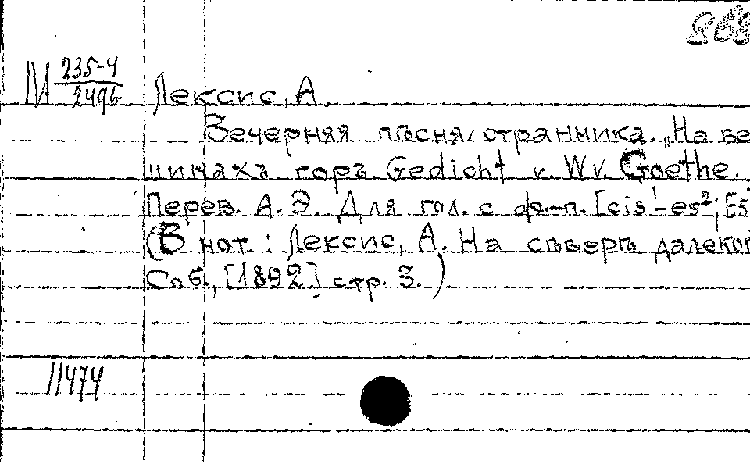 М 235-4/2496 Лексис, А.
Вечерняя пѣсня странника. „На ве
шинахъ горъ Gedicht v. W v. Goethe.
Перев. А. Э. Для гол. с ф-п. [cis¹-es²; Es
(В нот.: Лексис, А. На сѣверѣ далеко
Соб., [1892] стр. 3.)
11474